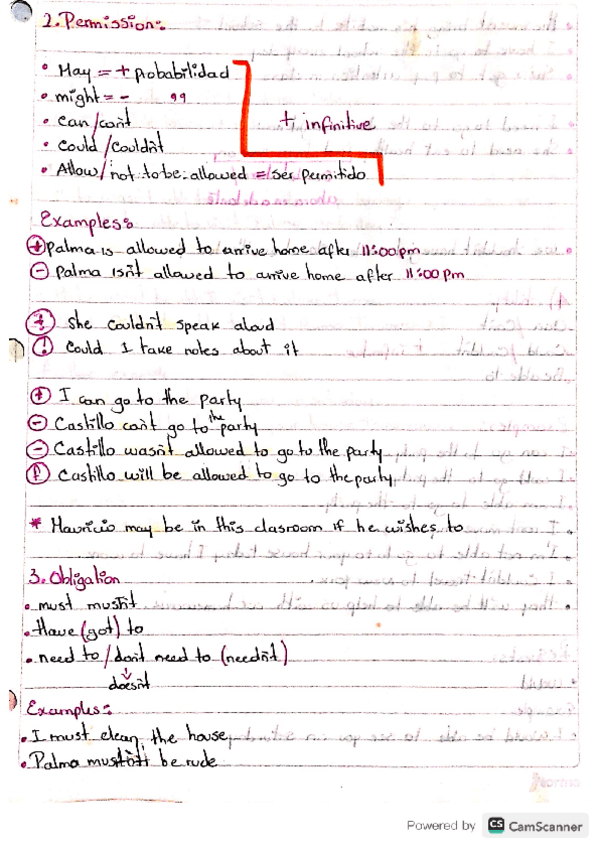 2. Permission:
• May = + probabilidad
• might = - "
• can/can't
• could/couldn't
+ infinitive
• Allow/not to be: allowed = ser permitido
Examples:
+ Palma is allowed to arrive home after 11:00 pm
- palma isn't allowed to arrive home after 11:00 pm
she couldn't speak aloud
Could I take notes about it
+ I can go to the party
- Castillo can't go to the party
- Castillo wasn't allowed to go to the party
Castillo will be allowed to go to the party
* Mauricio may be in this clasroom if he wishes to
3. Obligation
• must mustn't
• Have (got) to
• need to / don't need to (needn't)
doesn't
Examples:
• I must clean the house
• Palma mustn't be rude
Powered by CS CamScanner